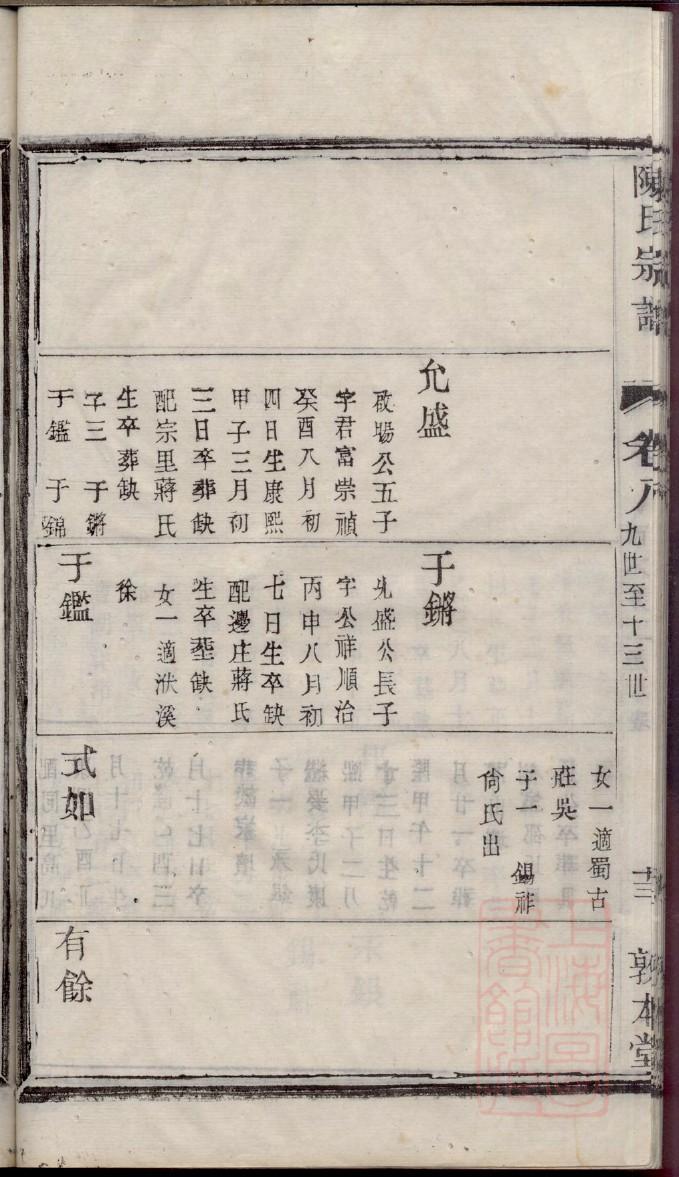 陳氏宗譜
卷八
九世至十三世
敦本堂
允盛
啟暘公五子
字君富崇禎
癸酉八月初
四日生康熙
甲子三月初
三日卒葬缺
配宗里蔣氏
生卒葬缺
子三 于鏘
于鑑 于錦
于鏘
允盛公長子
字公祥順治
丙申八月初
七日生卒缺
配邊庄蔣氏
生卒塟缺
女一適洑溪
徐
于鑑
女一適蜀古
莊吳
子一 錫祚
尚氏出
式如
有餘
上海圖書館藏